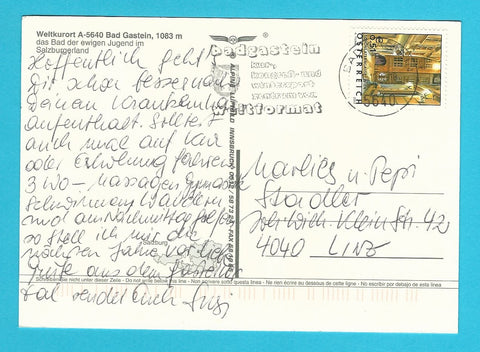 Weltkurort A-5640 Bad Gastein, 1083 m
das Bad der ewigen Jugend im
Salzburgerland
Hoffentlich geht's
Dir schon besser nach
Deinem Krankenhaus
aufenthalt. Solltest
auch mal auf Kur
oder Erholung fahren
3 Wo - Massagen Gymnastik
Schwimmen Wandern
und am Nachmittag
so stell ich mir die
nächsten Jahre vor. Liebe
Grüße aus dem Gasteiner
tal sendet Euch Susi
badgastein
kur-
kongreß- und
wintersport
zentrum von
Weltformat
ÖSTERREICH
0,51
5640
ALPINE LUFTBILD INNSBRUCK
Marlies u. Pepi
Stadler
Ludwich-Klein Str. 42
4040 LINZ
Salzburg
Schreibenlinie nicht unter dieser Zeile - Do not write below this line - Non scrivere sotto questa linea - Ne rien écrire au dessous de cette ligne - No escribir por debajo de esta linea